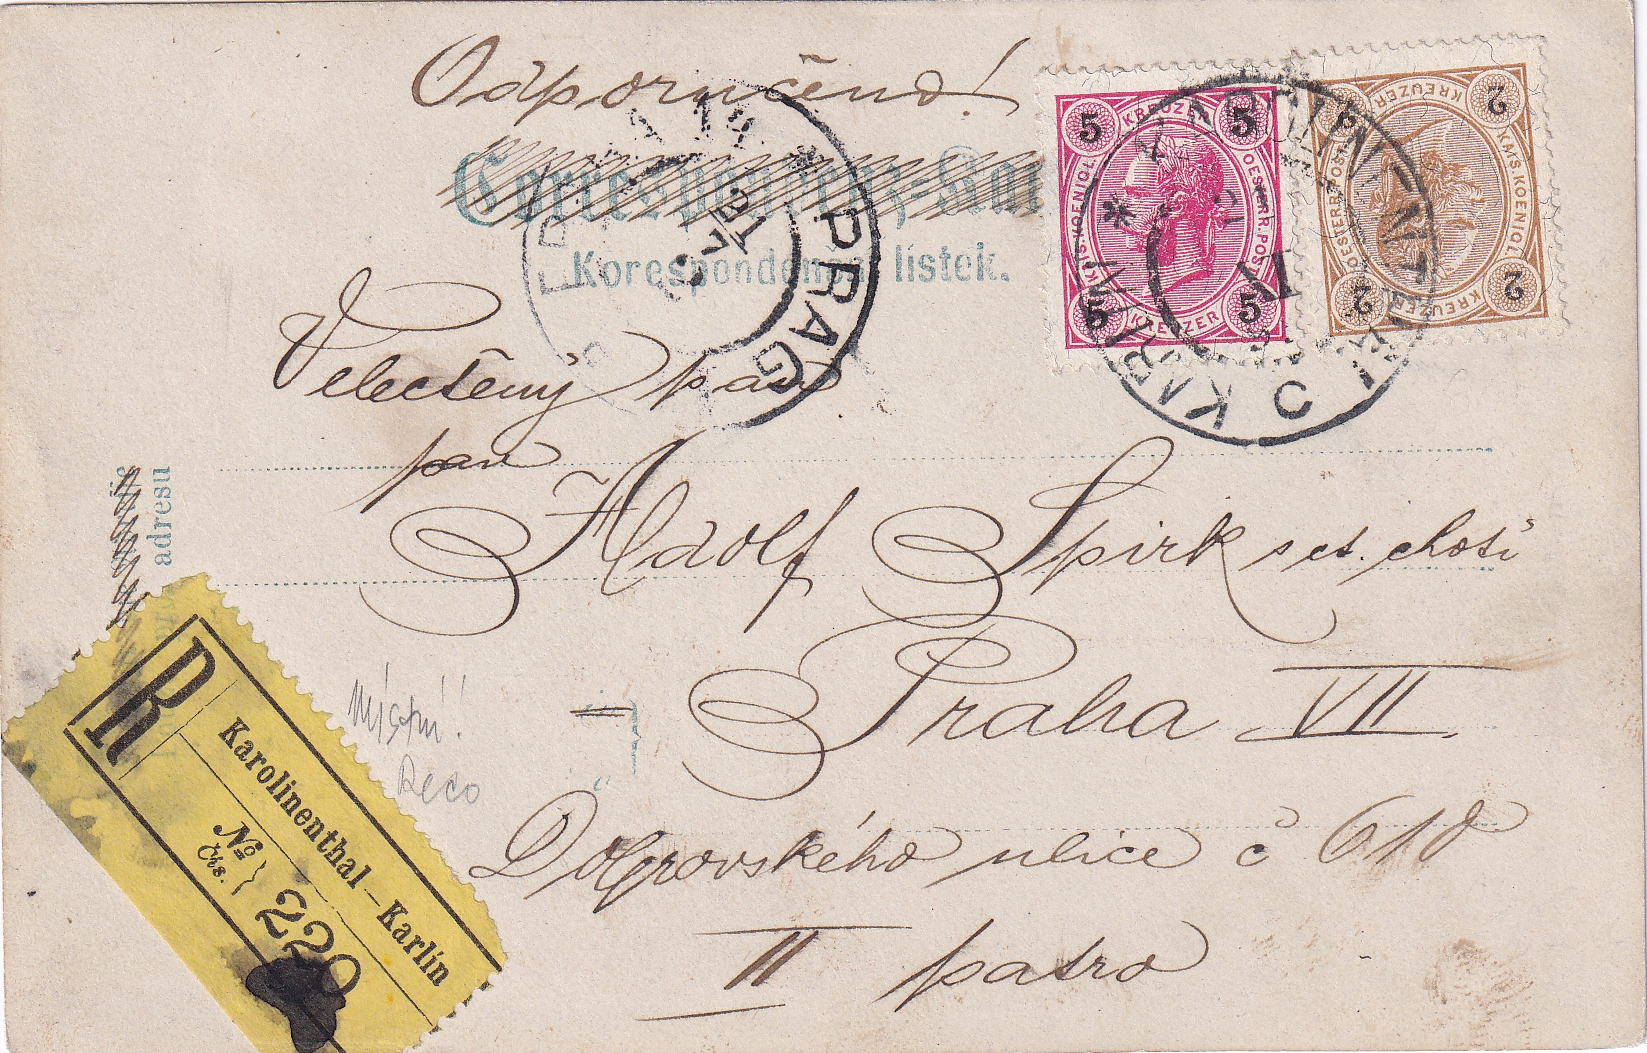 Odporučeno!
Correspondenz-Kar
Korespondenční lístek.
5 KREUZER 5
KAIS. KOENIGL. OESTERR. POST
5 KREUZER 5
2 KREUZER 2
KAIS. KÖNIGL. OESTERR. POST
2 KREUZER 2
KAROLINENTHAL
KARLÍN
PRAG
VII
Velectěný pan
pan
Adolf Spirk s ct. chotí
Praha VII.
Dobrovského ulice č 610
II patro
adresu
Místní!
Reco
R
Karolinenthal—Karlín
No
Čís. } 220